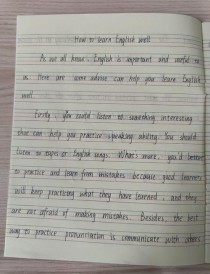 How to learn English well
As we all know, English is important and useful for
us. Here are some advice can help you learn English
well.
Firstly, you could listen to something interesting
that can help you practice speaking ability. You should
listen to tapes or English songs. What's more, you'd better
to practice and learn from mistakes because good learners
will keep practicing what they have learned, and they
are not afraid of making mistakes. Besides, the best
way to practice pronunciation is communicate with others